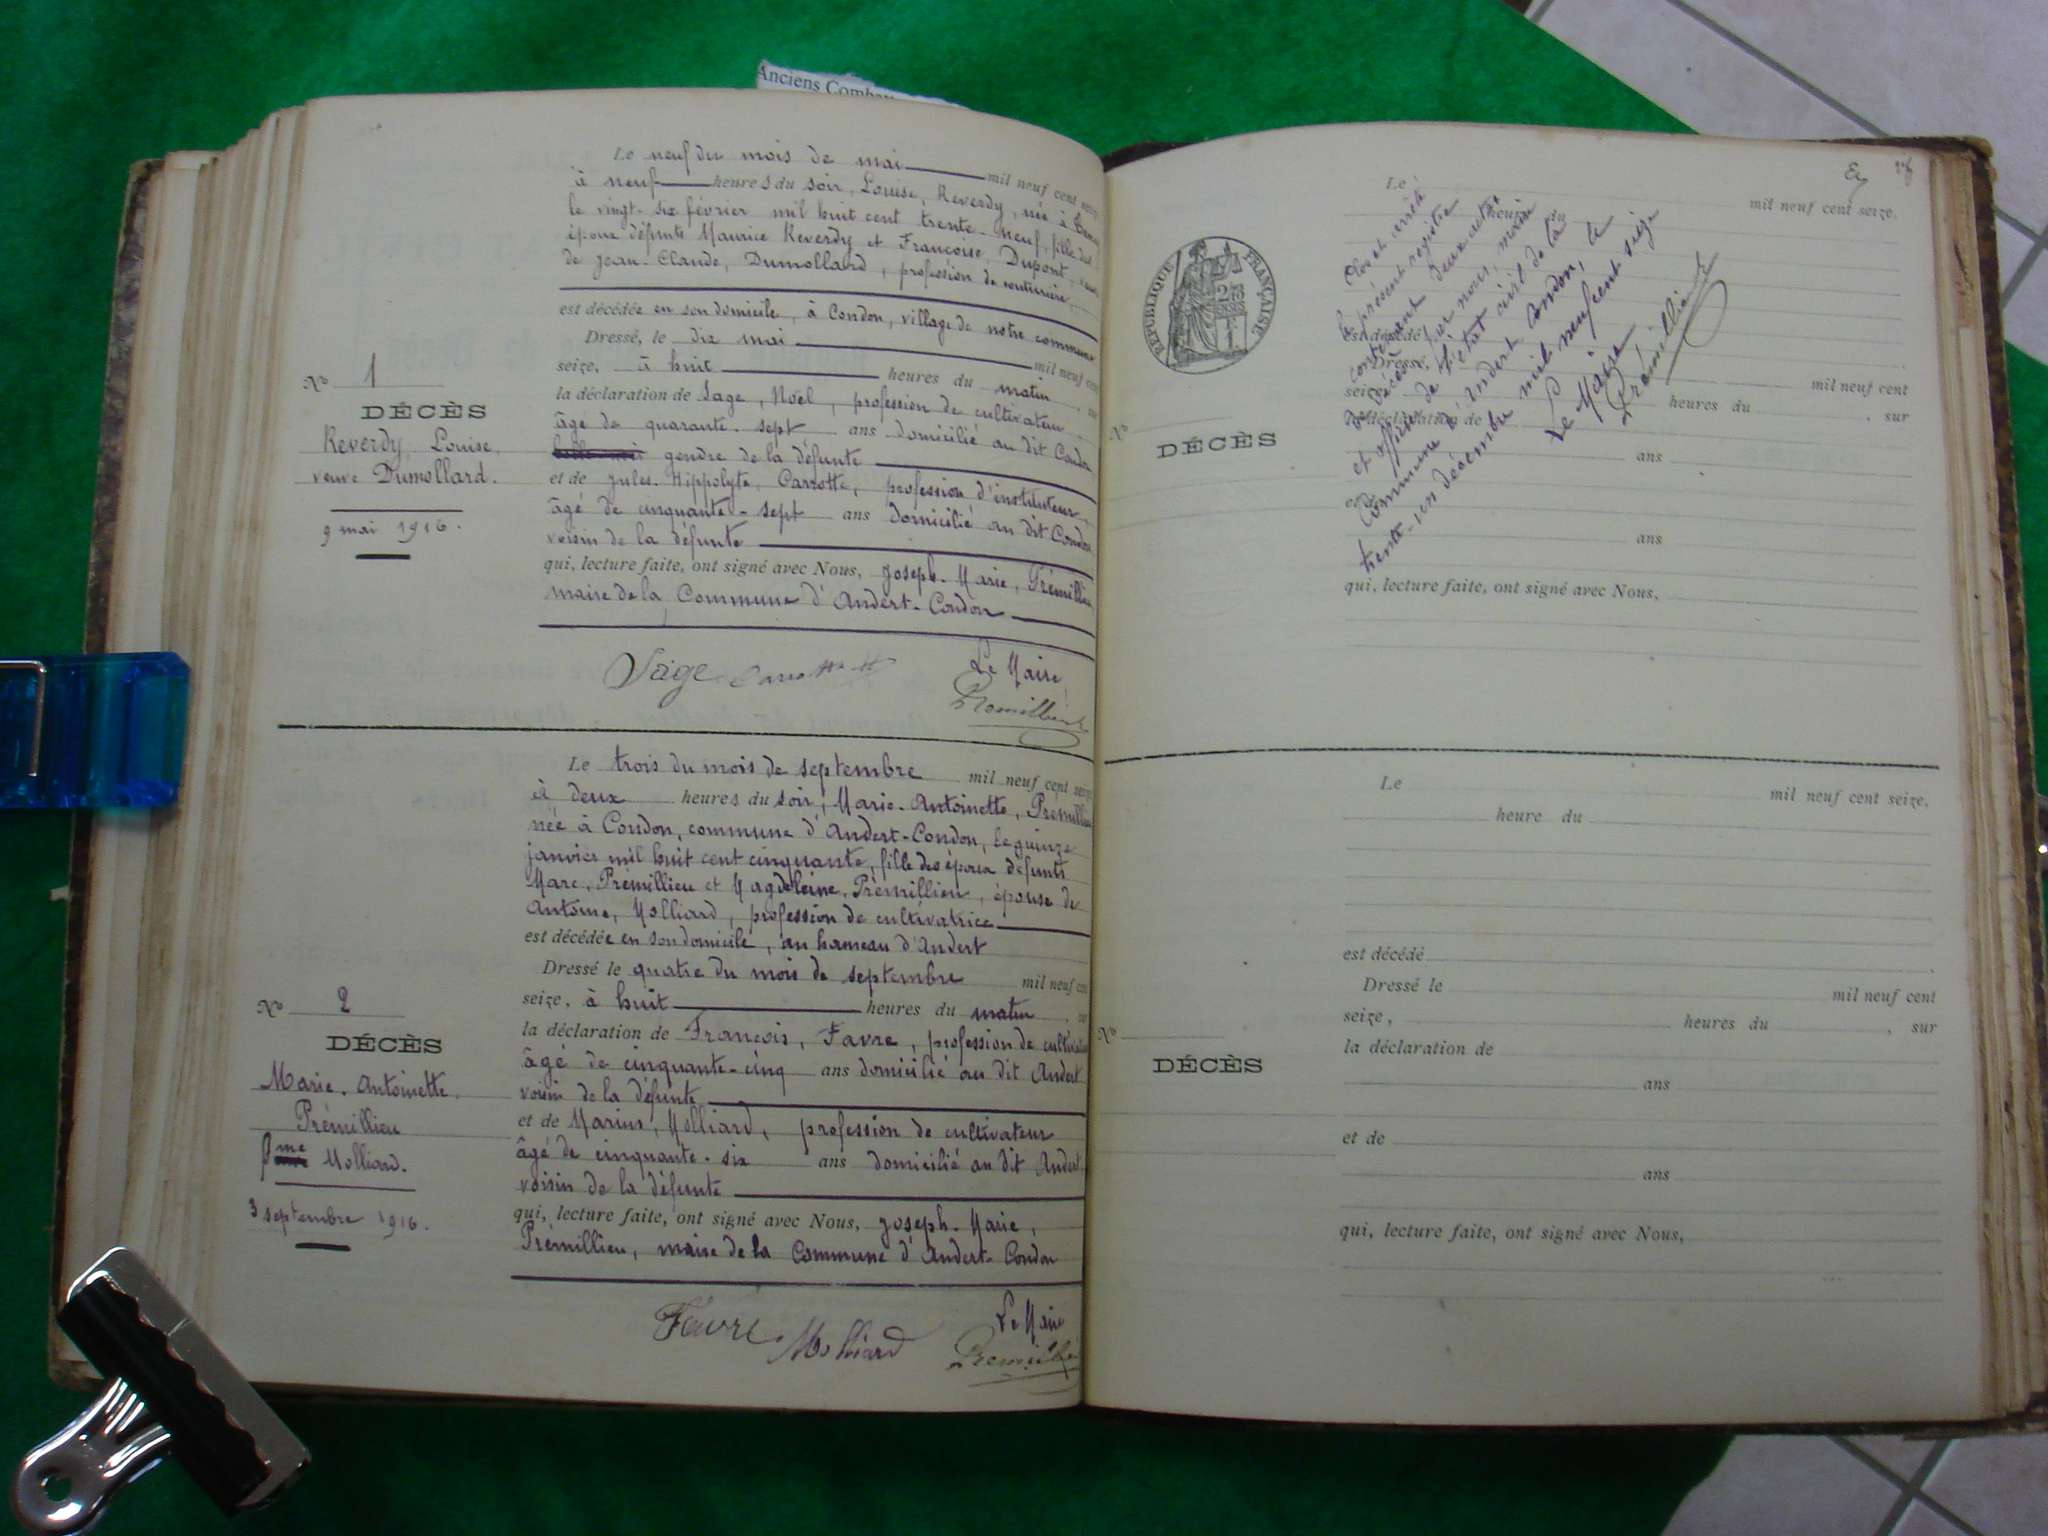 Anciens Comba
Le neuf du mois de mai mil neuf cent seize,
à neuf heures du soir, Louise, Reverdy, née à
le vingt-six février mil huit cent trente-neuf, fille des
époux défunts Maurice Reverdy et Françoise, Dupont, veuve
de Jean-Claude, Dumollard, profession de
est décédée en son domicile, à Condon, village de notre commune
Dressé, le dix mai mil neuf cent
seize, à huit heures du matin
la déclaration de Sage, Noël, profession de cultivateur
âgé de quarante-sept ans domicilié au dit Condon
gendre de la défunte
et de Jules-Hippolyte, Carrotte, profession d'instituteur,
âgé de cinquante-sept ans domicilié au dit Condon,
voisin de la défunte
qui, lecture faite, ont signé avec Nous, Joseph-Marie, Prémillieu
maire de la Commune d'Andert-Condon
Nº 1
DÉCÈS
Reverdy Louise,
veuve Dumollard.
9 mai 1916.
Sage Le Maire
Premillieu
Le trois du mois de septembre mil neuf cent seize
à deux heures du soir, Marie-Antoinette, Premillieu
née à Condon, commune d'Andert-Condon, le quinze
janvier mil huit cent cinquante, fille des époux défunts
Marc, Prémillieu et Magdeleine, Prémillieu, épouse de
Antoine, Molliard, profession de cultivatrice
est décédée en son domicile, au hameau d'Andert
Dressé le quatre du mois de septembre mil neuf cent
seize, à huit heures du matin
la déclaration de François, Favre, profession de cultivateur
âgé de cinquante-cinq ans domicilié au dit Andert
voisin de la défunte
et de Marius, Molliard, profession de cultivateur
âgé de cinquante-six ans domicilié au dit Andert
voisin de la défunte
qui, lecture faite, ont signé avec Nous, Joseph-Marie,
Prémillieu, maire de la Commune d'Andert-Condon
Nº 2
DÉCÈS
Marie-Antoinette
Prémillieu
fme Molliard.
3 septembre 1916.
Favre Molliard Le Maire
Premillieu
Le mil neuf cent seize,
heure du
RÉPUBLIQUE FRANÇAISE
est décédé
Dressé, mil neuf cent
seize, heures du , sur
la déclaration de
ans
et de
ans
qui, lecture faite, ont signé avec Nous,
Nº
DÉCÈS
Clos et arrêté
le présent registre
contenant deux actes
de décès par nous, maire
et officier de l'état civil de la
commune d'Andert Condon, le
trente-un décembre mil neuf cent seize
Le Maire
Prémillieu
Le mil neuf cent seize,
heure du
est décédé
Dressé le mil neuf cent
seize, heures du , sur
la déclaration de
ans
et de
ans
qui, lecture faite, ont signé avec Nous,
Nº
DÉCÈS